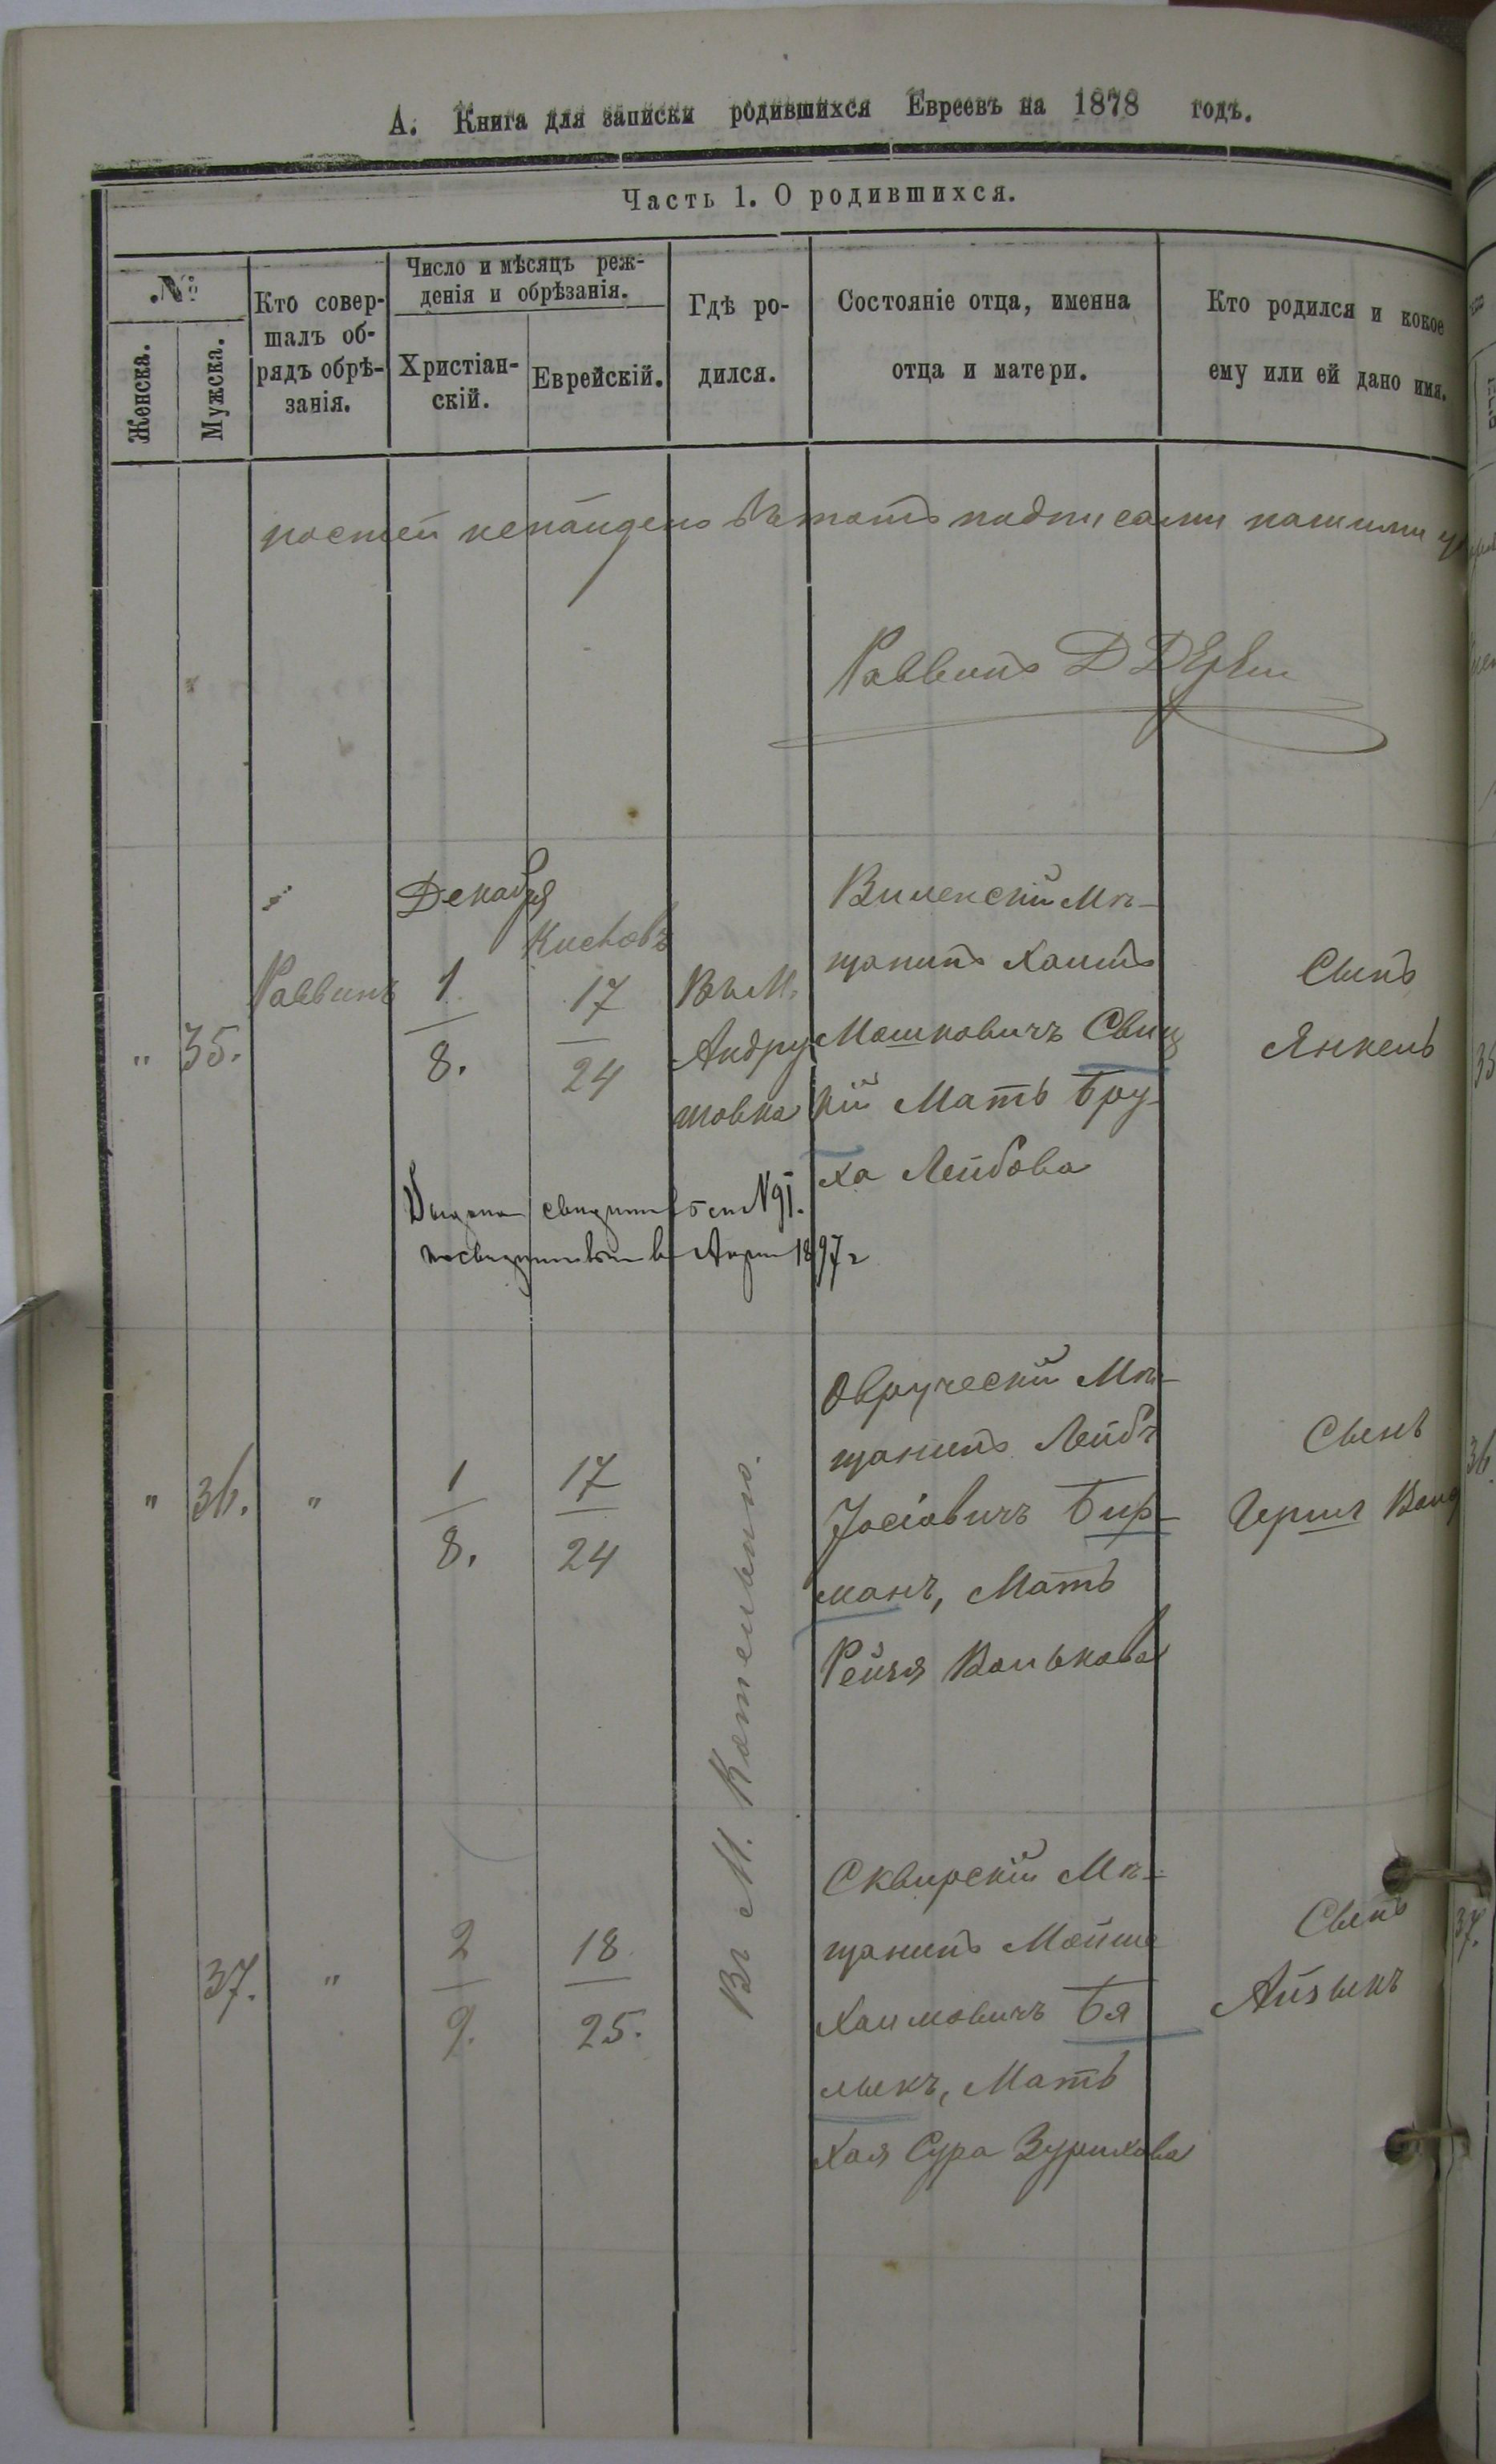 А. Книга для записки родившихся Евреевъ на 1878 годъ.
Часть 1. О родившихся.
№
Женска.
Мужска.
Кто совер-
шалъ об-
рядъ обрѣ-
занія.
Число и мѣсяцъ реж-
денія и обрѣзанія.
Христіан-
скій.
Еврейскій.
Гдѣ ро-
дился.
Состояніе отца, именна
отца и матери.
Кто родился и кокое
ему или ей дано имя.
ностей ненайдено Въ томъ подписами нашими
Раввинъ Д
"
35.
Раввинъ
Декабря
1
8.
Кислевъ
17
24
Въ М.
Андру
шовка
Виленскій Мѣ-
щанинъ Хаимъ
Мошковичъ Свиц
кій Мать Бру-
ха Лейбова
Сынъ
Янкель
1897 г
"
36.
"
1
8.
17
24
Въ М. Котельню.
Овруческій Мѣ-
щанинъ Лейбъ
Іосіовичъ Бир-
манъ, Мать
Рейзя Волькова
Сынъ
Гершъ
37.
"
2
9.
18
25.
Сквирскій Мѣ-
щанинъ Мойше
Хаимовичъ Бя
лыкъ, Мать
Хая Сура
Сынъ
Айзыкъ
35
36
37.